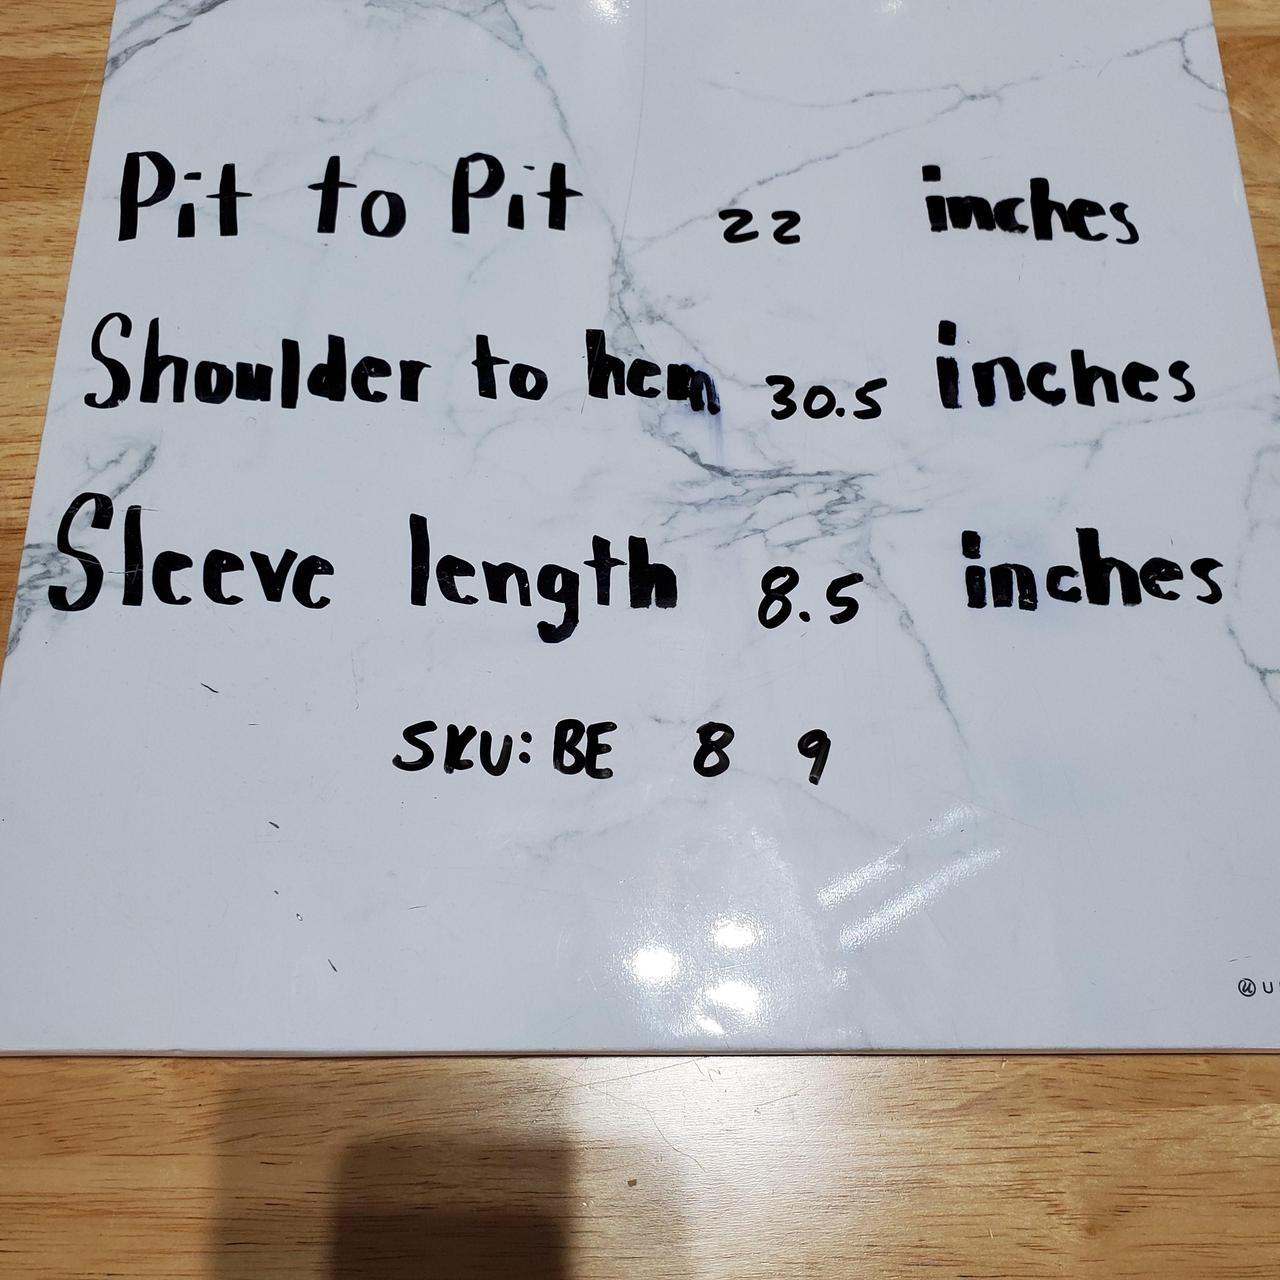 Pit to Pit 22 inches
Shoulder to hem 30.5 inches
Sleeve length 8.5 inches
SKU: BE 8 9